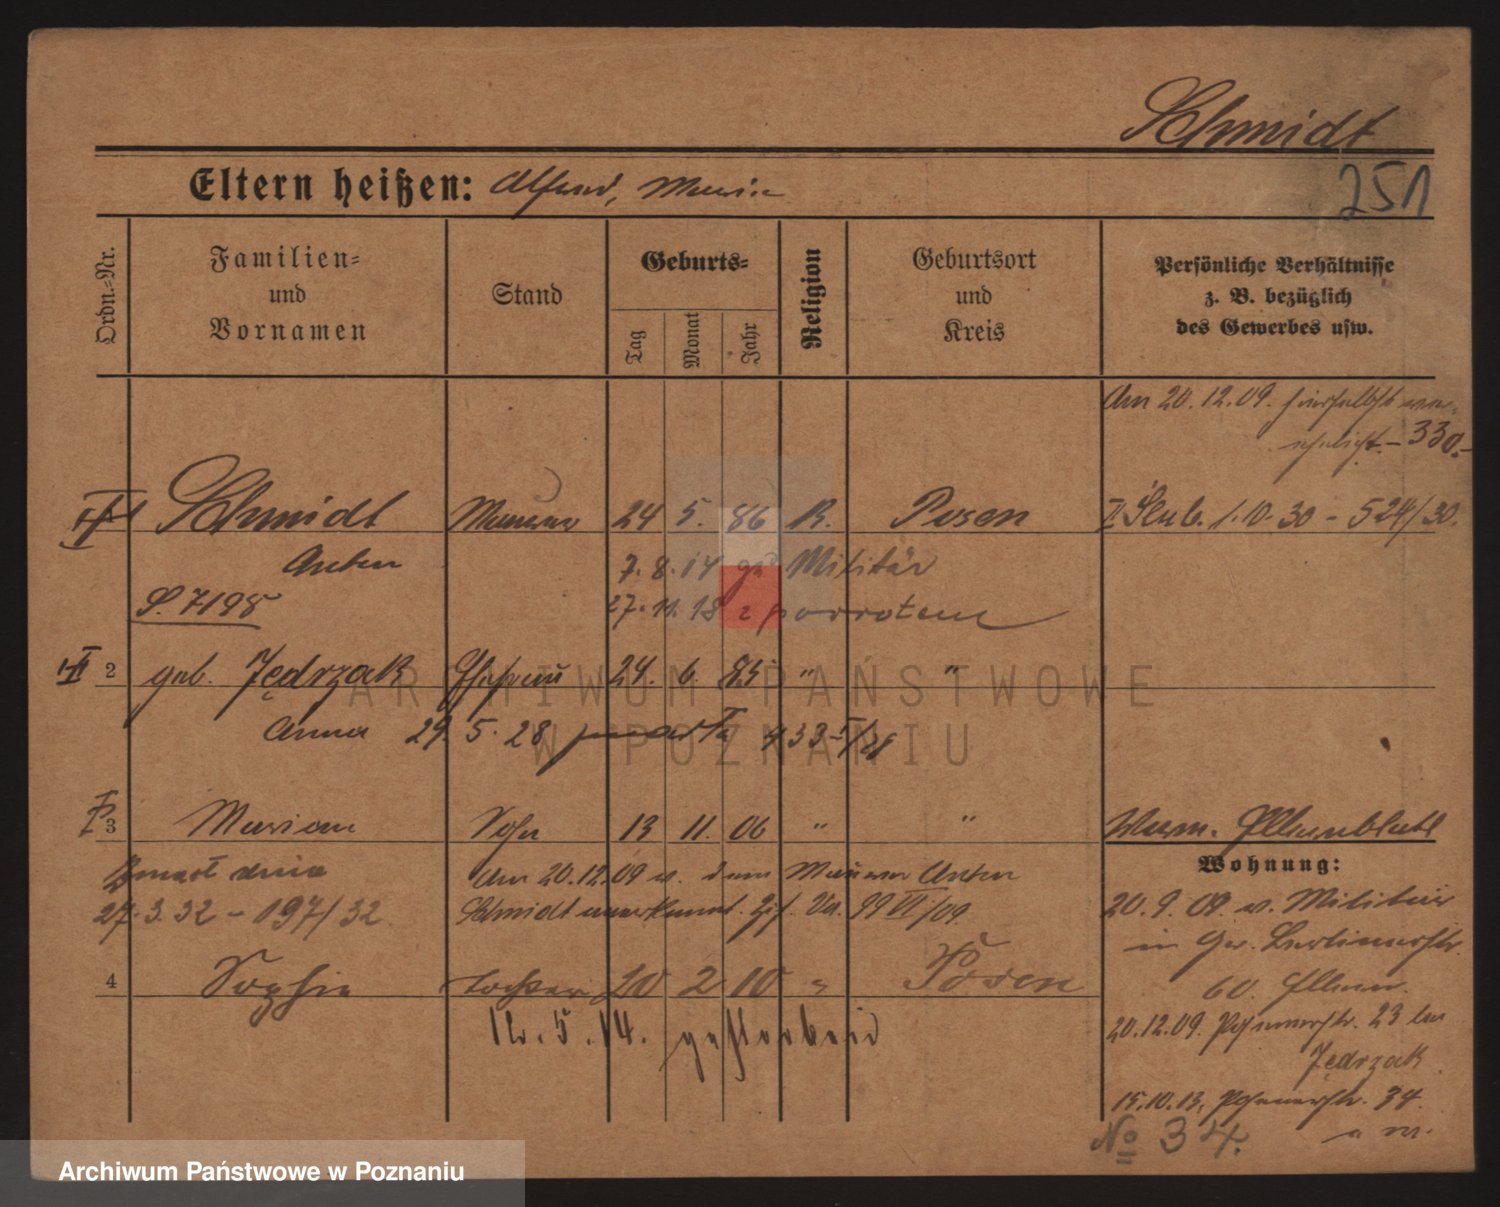 Schmidt
251
Eltern heißen: Alfred, Maria
Ordn.=Nr.
Familien=
und
Vornamen
Stand
Geburts=
Tag
Monat
Jahr
Religion
Geburtsort
und
Kreis
Persönliche Verhältnisse
z. B. bezüglich
des Gewerbes usw.
Am 20.12.09. hierselbst ver-
ehelicht. – 330.–
Schmidt Maurer 24 5. 86 R. Posen II Ślub. 1.10.30 – 524/30.
Anton 7.8.14 Militär
S. 7198 27.11.18 z powrotem
2 geb. Jędrzak Ehefrau 24. 6. 85 " "
Anna 29. 5. 28 zmarła 433
3 Marian Sohn 13 11. 06 " "
Zmarł dnia Am 20.12.09 v. dem Maurer Anton
27.3.32 – 197/32. Schmidt anerkannt. 99 VI/09.
4 Sophie Tochter 20 2 10 " Posen
12. 5. 14. gestorben
Wohnung:
20.9.09. v. Militär
in Gr. Berlinerstr.
60.
20.12.09. Posenerstr. 23 bei
Jędrzak
15.10.13. Posenerstr. 34.
No 34.
ARCHIWUM PAŃSTWOWE
W POZNANIU
Archiwum Państwowe w Poznaniu